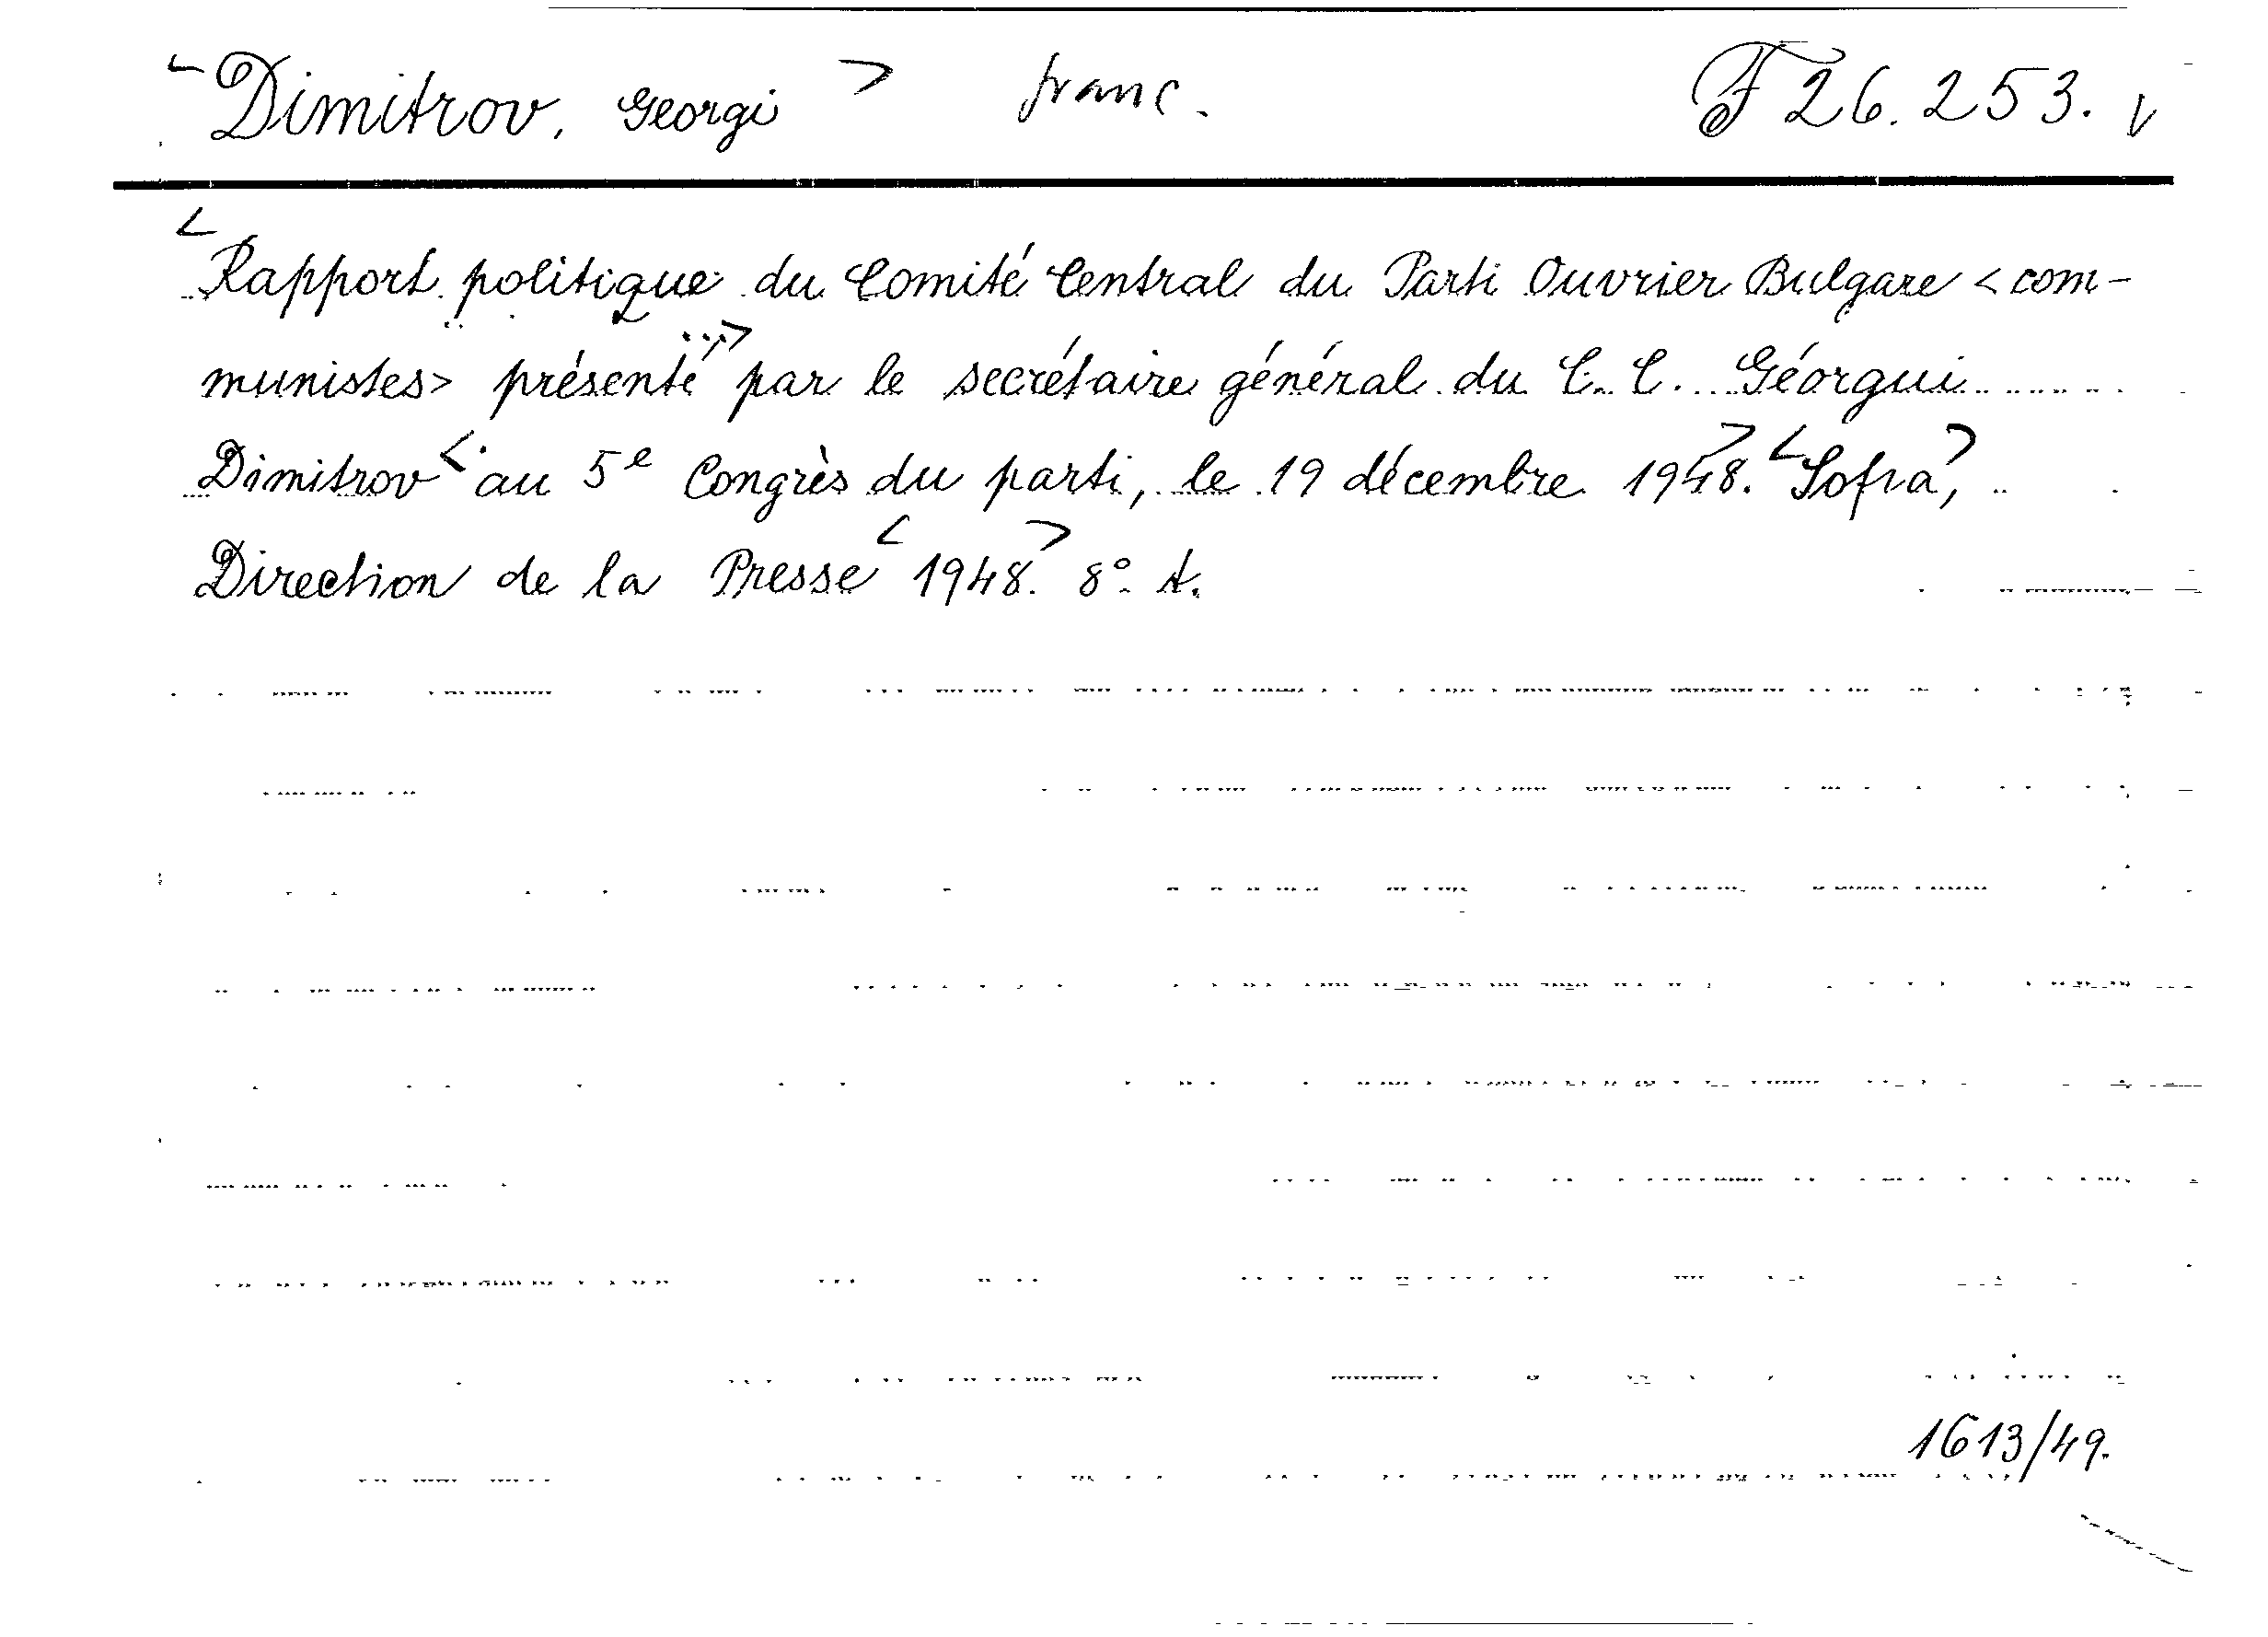 <Dimitrov, Georgi> franc. F 26.253. v
<Rapport politique du Comité Central du Parti Ouvrier Bulgare <com-
munistes> présenté ...> par le secrétaire général du C. C. Géorgui
Dimitrov <au 5e Congrès du parti, le 19 décembre 1948.> <Sofia>,
Direction de la Presse <1948.> 8°. t.
1613/49.